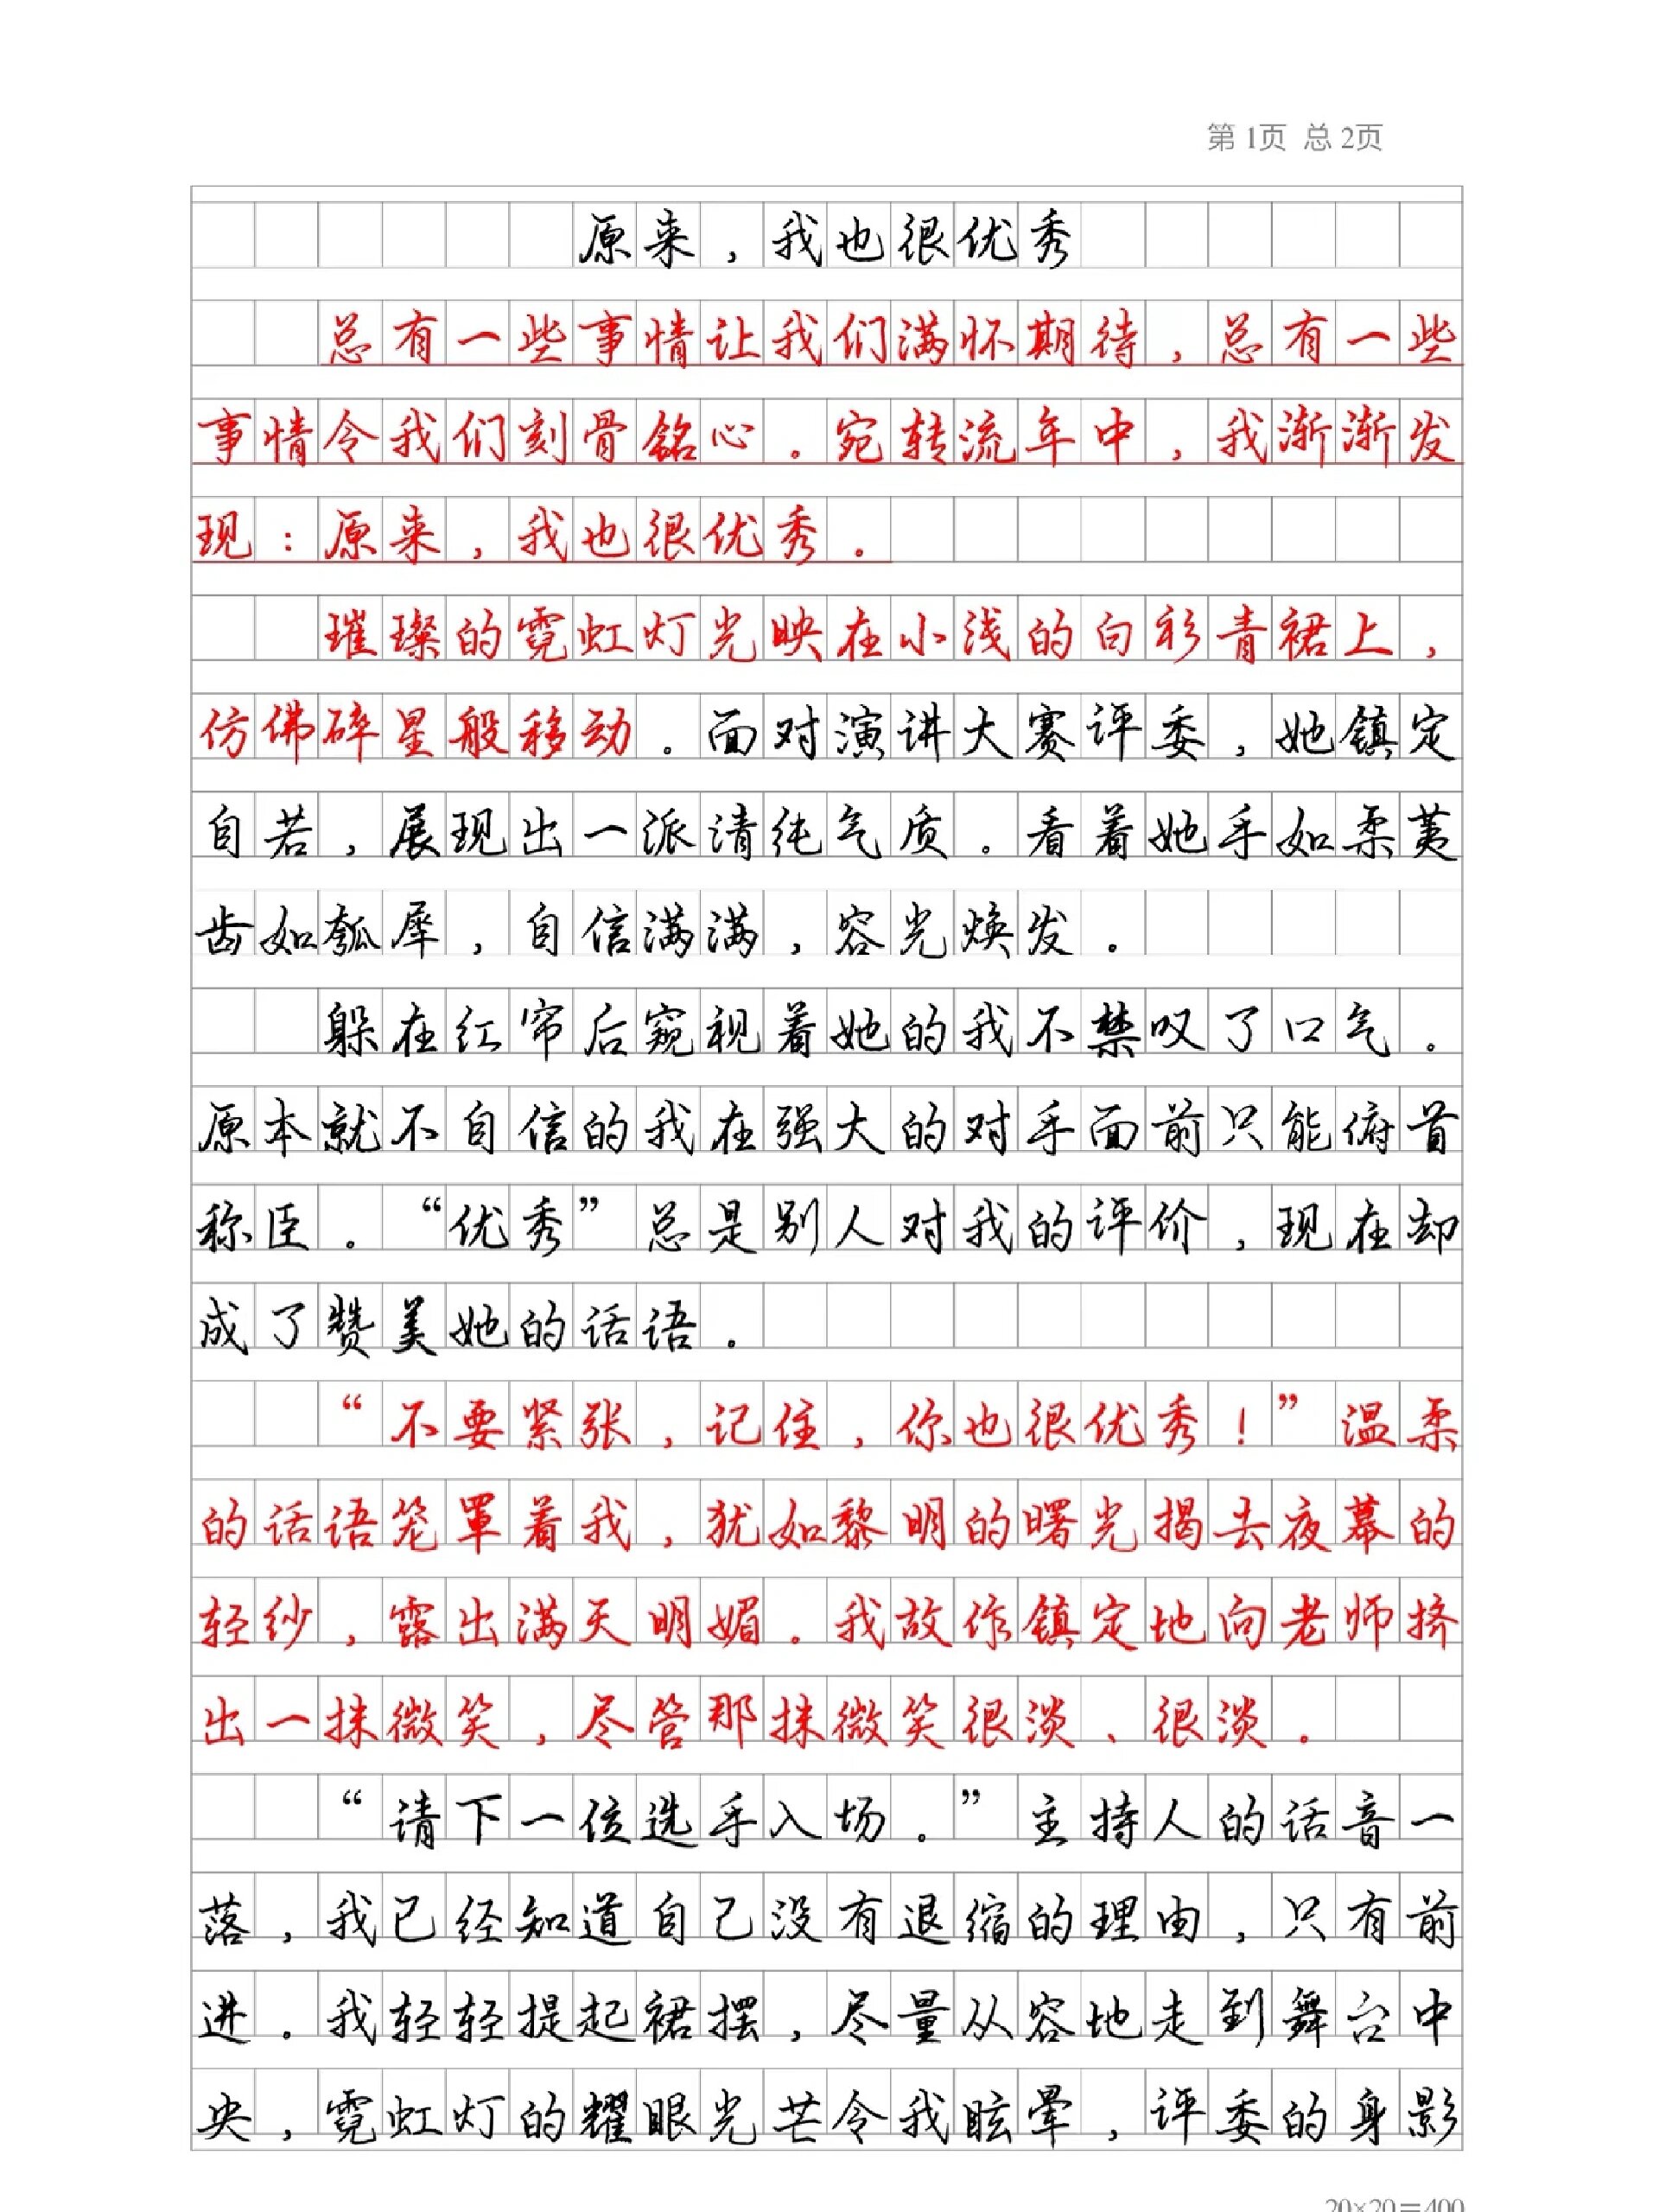 第1页 总2页
原来，我也很优秀
总有一些事情让我们满怀期待，总有一些
事情令我们刻骨铭心。宛转流年中，我渐渐发
现：原来，我也很优秀。
璀璨的霓虹灯光映在小浅的白衫青裙上，
仿佛碎星般移动。面对演讲大赛评委，她镇定
自若，展现出一派清纯气质。看着她手如柔荑
齿如瓠犀，自信满满，容光焕发。
躲在红帘后窥视着她的我不禁叹了口气。
原本就不自信的我在强大的对手面前只能俯首
称臣。“优秀”总是别人对我的评价，现在却
成了赞美她的话语。
“不要紧张，记住，你也很优秀！”温柔
的话语笼罩着我，犹如黎明的曙光揭去夜幕的
轻纱，露出满天明媚。我故作镇定地向老师挤
出一抹微笑，尽管那抹微笑很淡、很淡。
“请下一位选手入场。”主持人的话音一
落，我已经知道自己没有退缩的理由，只有前
进。我轻轻提起裙摆，尽量从容地走到舞台中
央，霓虹灯的耀眼光芒令我眩晕，评委的身影
20×20=400